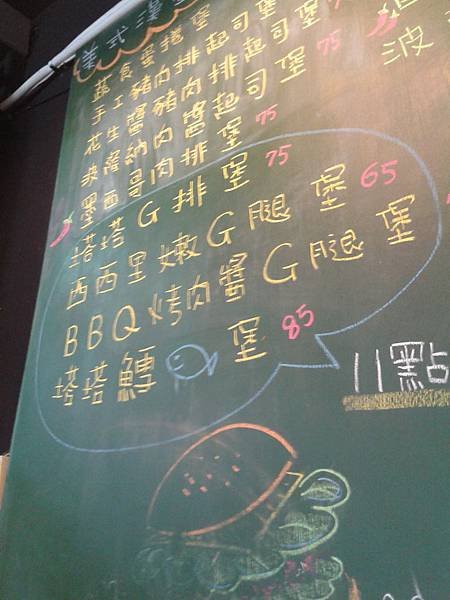 美式漢
蔬食蛋捲堡
手工豬肉排起司堡
花生醬豬肉排起司堡 75
波
肉醬起司堡
墨西哥肉排堡 75
塔塔G排堡 75
西西里嫩G腿堡 65
BBQ烤肉醬G腿堡
塔塔鱈 堡 85
11點